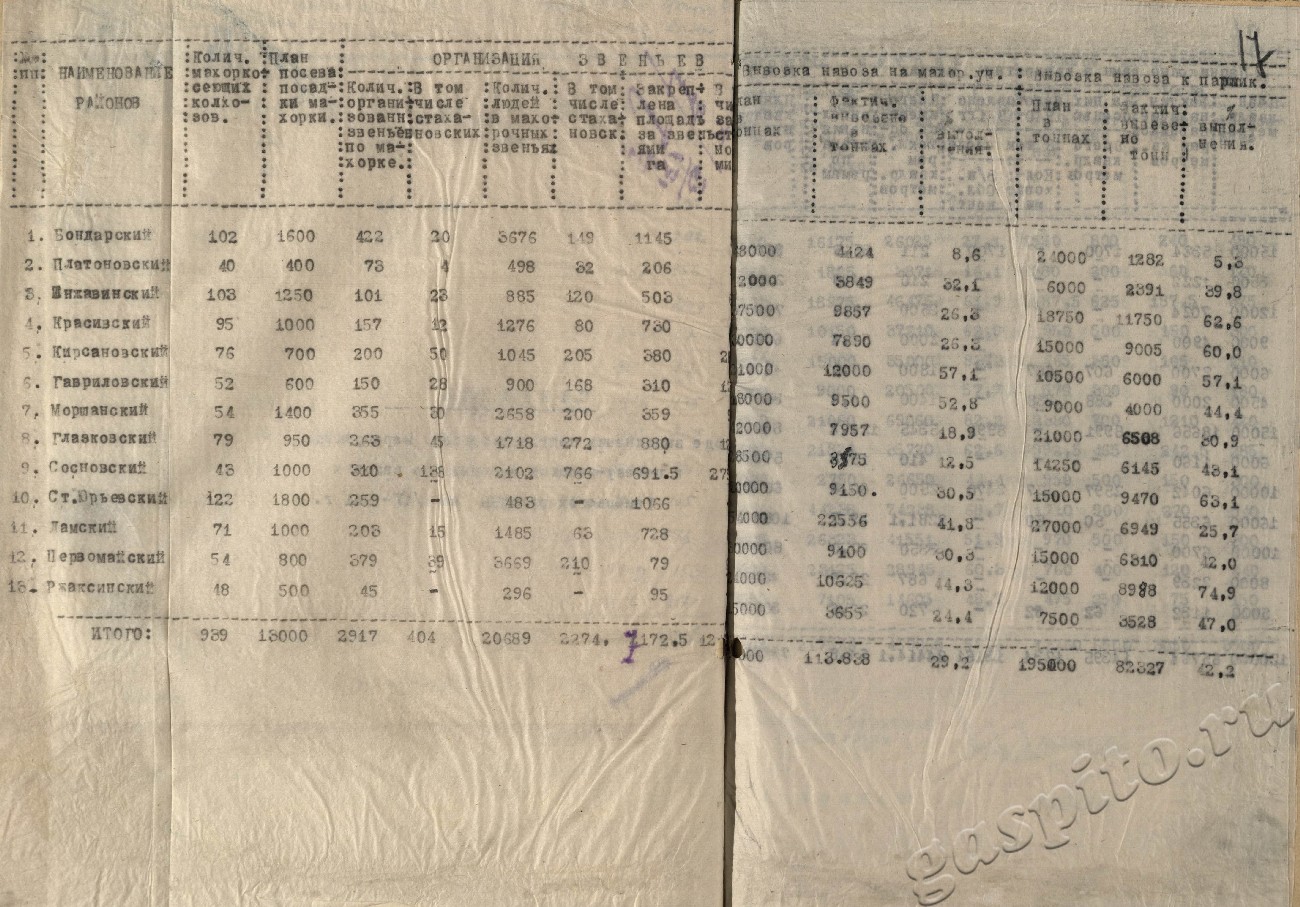 17
№№ НАИМЕНОВАНИЕ Колич. План ОРГАНИЗАЦИЯ ЗВЕНЬЕВ Вывозка навоза на махор.уч. Вывозка навоза к парник.
пп. РАЙОНОВ махорко- посева Колич. В том Колич. В том Закреп- План фактич. % План фактич. %
сеющих посад- органи- числе людей числе лена в вывезено выпол- в вывезе- выпол-
колхо- ки ма- зованн. стаха- в махо- стаха- площадь тоннах в нения. тоннах но нения.
зов. хорки. звеньев новских рочных новск. за звень- тоннах. тонн
по ма- звеньях ями
хорке. га
1. Бондарский 102 1600 422 20 3676 149 1145 8000 4424 8,6 24000 1282 5,3
2. Платоновский 40 400 73 4 498 32 206 2000 3849 32,1 6000 2391 39,8
3. Инжавинский 103 1250 101 23 885 120 503 7500 9857 26,3 18750 11750 62,6
4. Красивский 95 1000 157 12 1276 80 730 0000 7890 26,3 15000 9005 60,0
5. Кирсановский 76 700 200 50 1045 205 380 1000 12000 57,1 10500 6000 57,1
6. Гавриловский 52 600 150 28 900 168 310 8000 9500 52,8 9000 4000 44,4
7. Моршанский 54 1400 355 30 2658 200 359 2000 7957 18,9 21000 6508 30,9
8. Глазковский 79 950 263 45 1718 272 880 8500 12,5 14250 6145 43,1
9. Сосновский 43 1000 310 138 2102 766 691.5 27 0000 9150. 30,5 15000 9470 63,1
10. Ст.Юрьевский 122 1800 259 - 483 - 1066 4000 22556 41,8 27000 6949 25,7
11. Ламский 71 1000 203 15 1485 63 728 0000 9100 30,3 15000 6310 42,0
12. Первомайский 54 800 379 39 3669 210 79 4000 10625 44,3 12000 8988 74,9
13. Ржаксинский 48 500 45 - 296 - 95 5000 3655 24,4 7500 3528 47,0
ИТОГО: 939 13000 2917 404 20689 2274. 7172,5 000 113.838 29,2 195000 82327 42,2
gaspito.ru